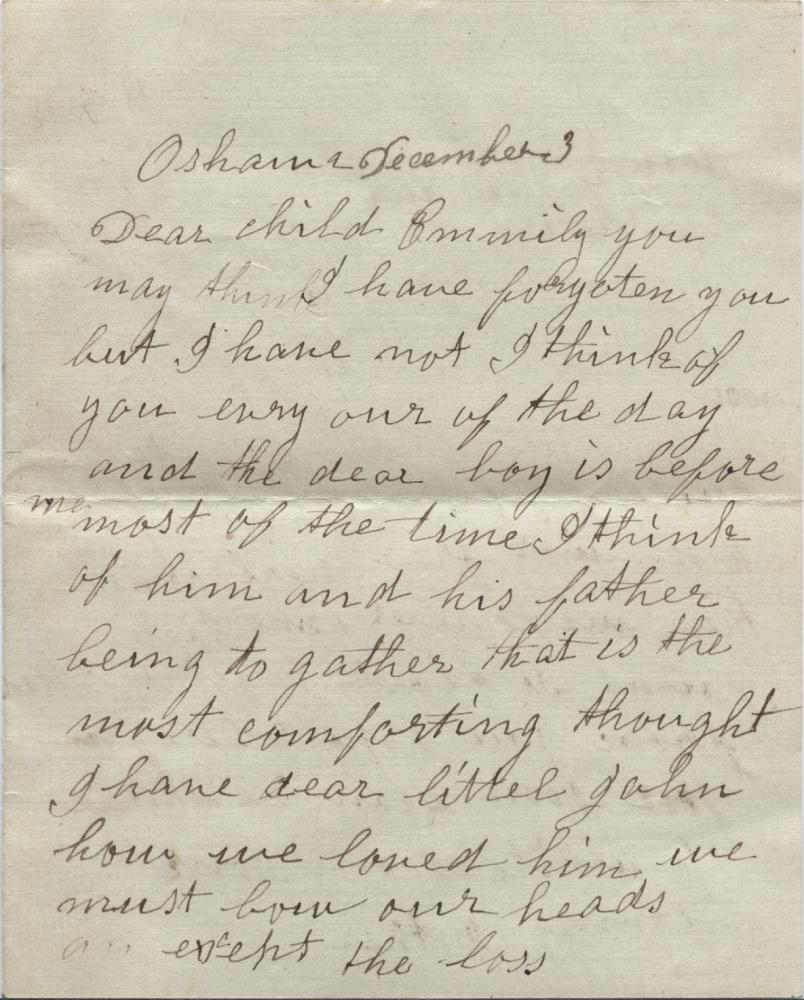 Oshawa December 3
Dear child Emmily you
may think I have forgoten you
but I have not I think of
you evry our of the day
and the dear boy is before
me most of the time I think
of him and his father
being to gather that is the
most comforting thought
I have dear littel John
how we loved him we
must bow our heads
an exsept the loss